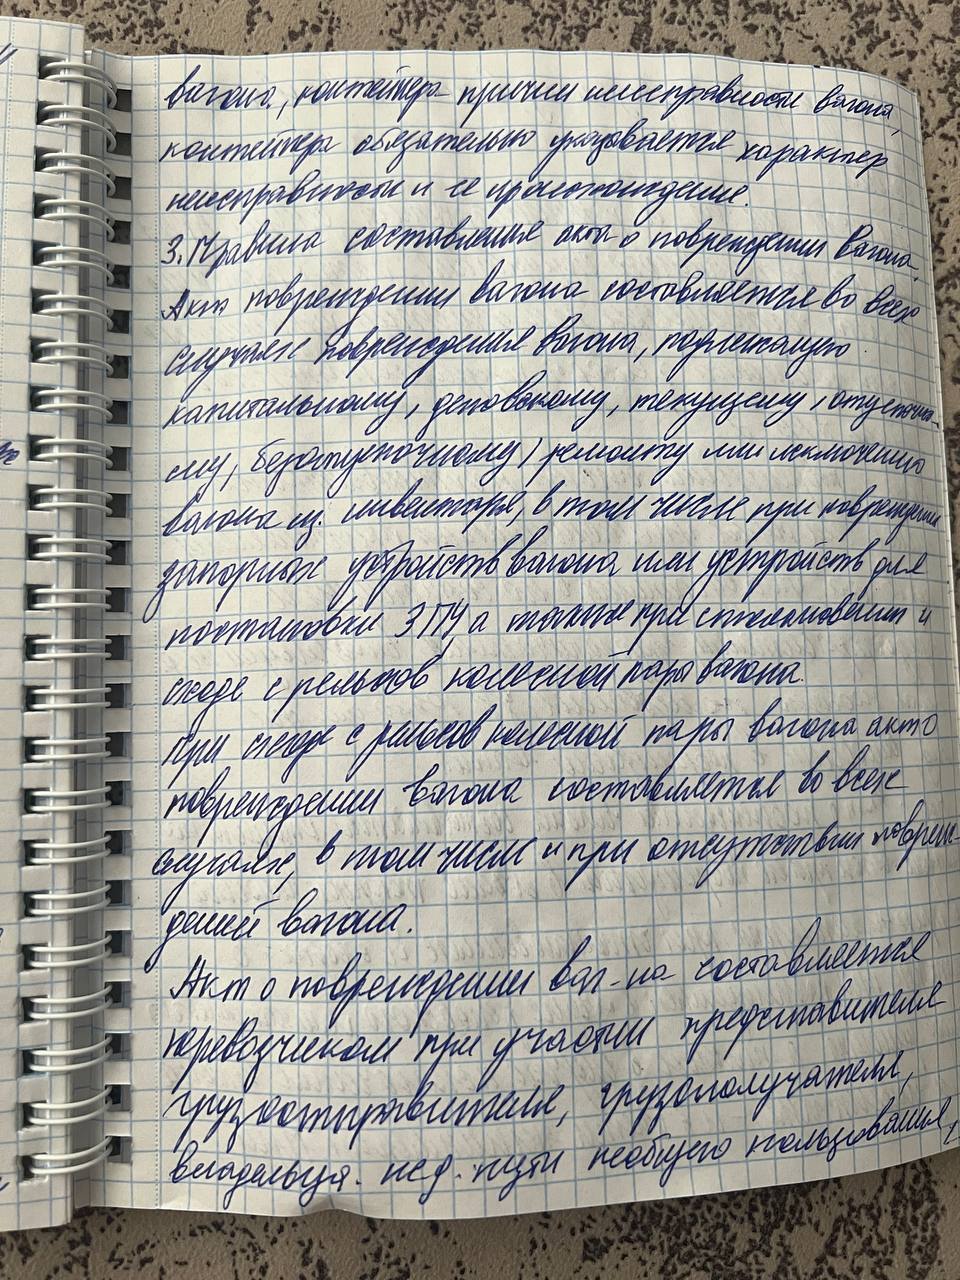 вагона, контейнера причин неисправности вагона,
контейнера обязательно указывается характер
неисправности и ее происхождение.
3. Правила составления акта о повреждении вагона.
Акт повреждении вагона составляется во всех
случаях повреждения вагона, подлежащую
капитальному, деповскому, текущему (отцепочно-
му, безотцепочному) ремонту или исключению
вагона из. инвентаря, в том числе при повреждении
запорных устройств вагона или устройств для
постановки ЗПУ, а также при столкновении и
сходе с рельсов колесной пары вагона.
При сходе с рельсов колесной пары вагона акт о
повреждении вагона составляется во всех
случаях, в том числе и при отсутствии повреж-
дений вагона.
Акт о повреждении ваг-на составляется
перевозчиком при участии представителя
грузоотправителя, грузополучателя,
владельца. ж.д. пути необщего пользования,